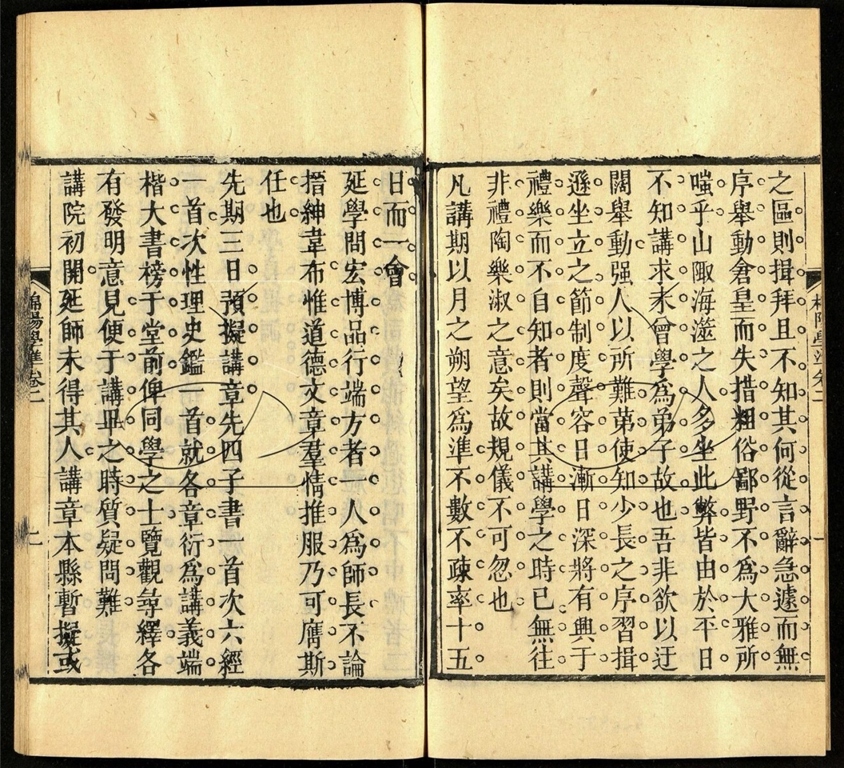 之區則揖拜且不知其何從言辭急遽而無
序舉動倉皇而失措粗俗鄙野不為大雅所
嗤乎山陬海澨之人多坐此弊皆由於平日
不知講求未曾學為弟子故也吾非欲以迂
闊舉動强人以所難苐使知少長之序習揖
遜坐立之節制度聲容日漸日深將有興于
禮樂而不自知者則當其講學之時已無往
非禮陶樂淑之意矣故規儀不可忽也
凡講期以月之朔望為準不數不疎率十五
日而一會
延學問宏博品行端方者一人為師長不論
搢紳韋布惟道德文章羣情推服乃可膺斯
任也
先期三日預擬講章先四子書一首次六經
一首次性理史鑑一首就各章衍為講義端
楷大書榜于堂前俾同學之士覽觀尋繹各
有發明意見便于講畢之時質疑問難
講院初開延師未得其人講章本縣暫擬或
棉陽學準卷二
一
棉陽學準卷二
二